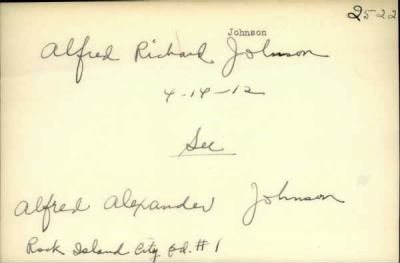 25-22
Johnson
Alfred Richard Johnson
4-14-12
See
Alfred Alexander Johnson
Rock Island City Bd. #1